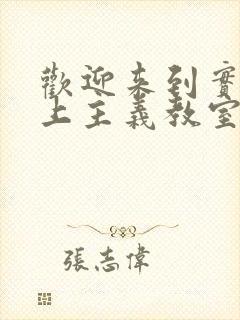 歡迎来到實
上主義教室
張志偉